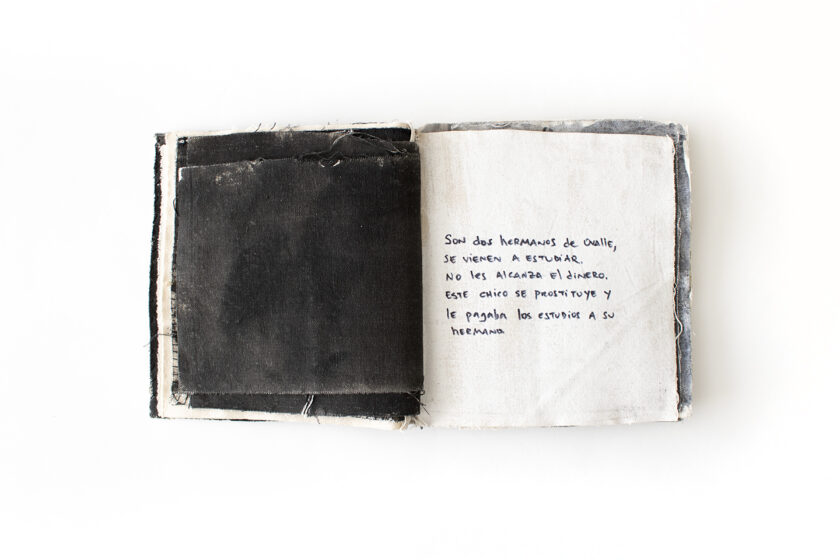 SON dos hERMANOS de OVAllE,
SE VIENEN A ESTUDIAR.
NO lES AlCANZA El diNERO.
ESTE CHICO SE PROSTITUYE Y
lE pAgAbA los ESTUDIOS A SU
hERMANO